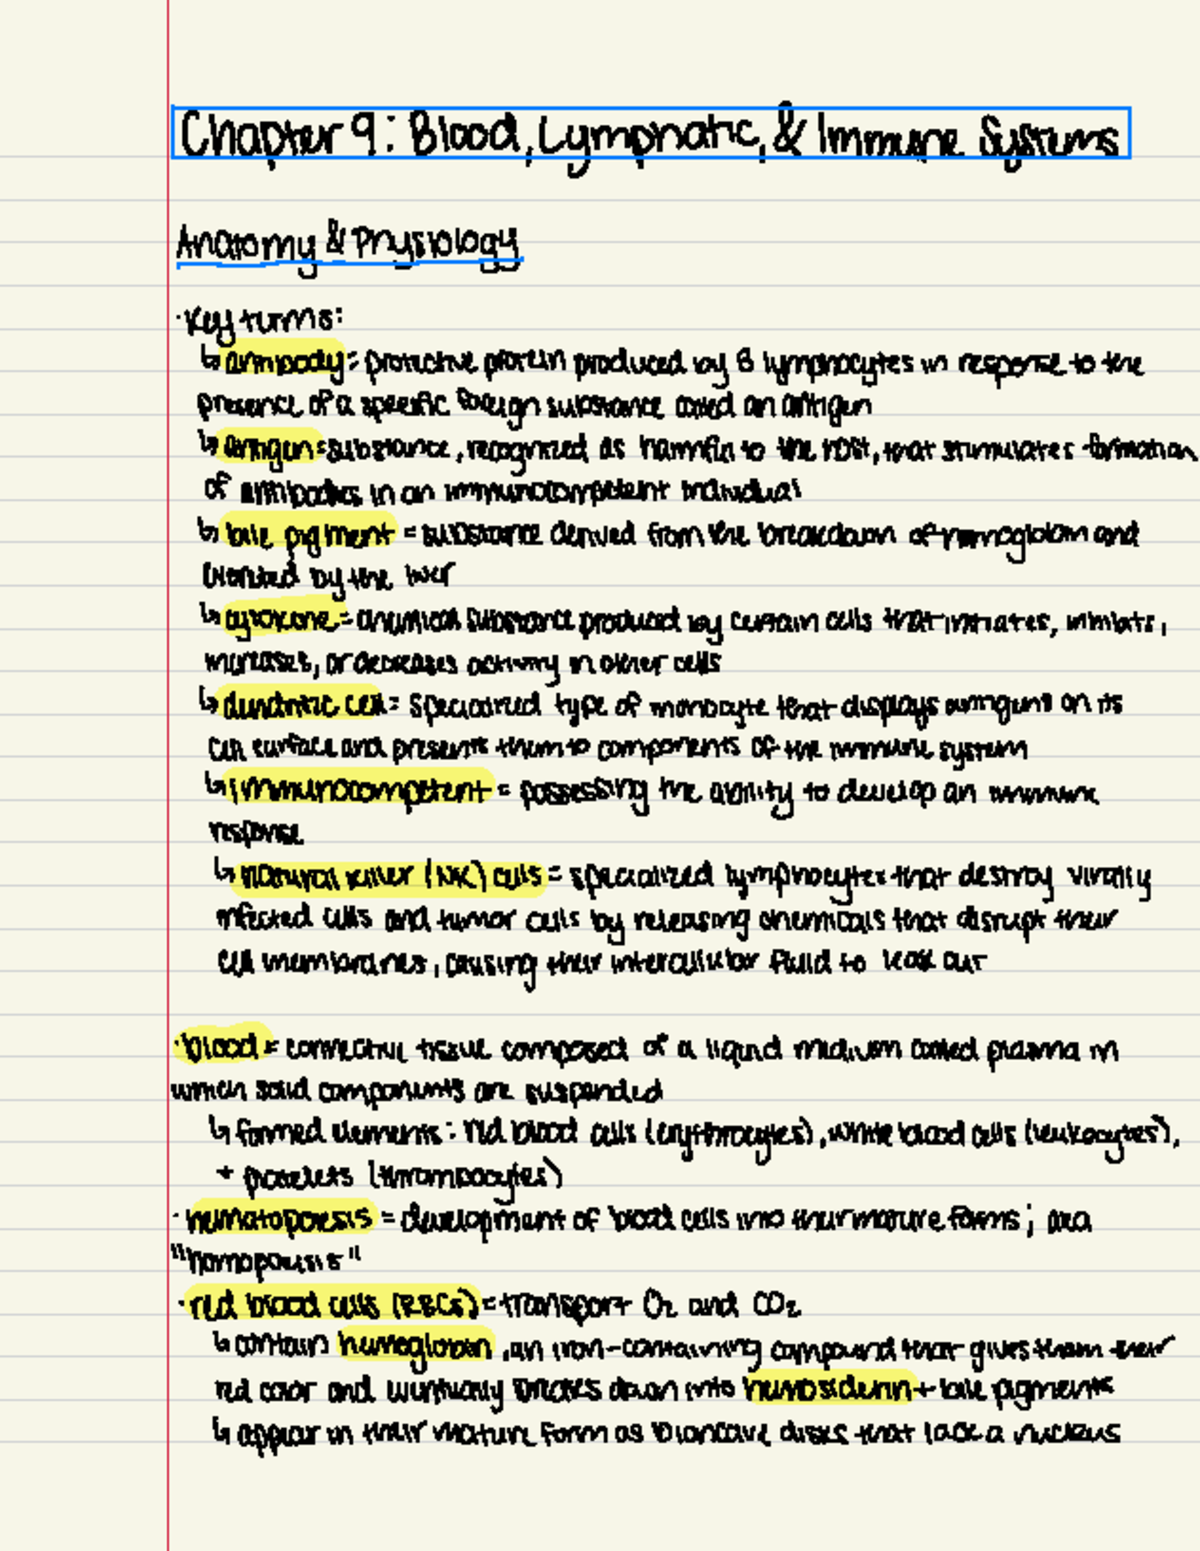 Chapter 9: Blood, Lymphatic, & Immune Systems
Anatomy & Physiology
· Key terms:
↳ antibody = protective protein produced by B lymphocytes in response to the
presence of a specific foreign substance called an antigen
↳ antigen = substance, recognized as harmful to the host, that stimulates formation
of antibodies in an immunocompetent individual
↳ bile pigment = substance derived from the breakdown of hemoglobin and
excreted by the liver
↳ cytokine = chemical substance produced by certain cells that initiates, inhibits,
increases, or decreases activity in other cells
↳ dendritic cell = specialized type of monocyte that displays antigens on its
cell surface and presents them to components of the immune system
↳ immunocompetent = possessing the ability to develop an immune
response
↳ natural killer (NK) cells = specialized lymphocytes that destroy virally
infected cells and tumor cells by releasing chemicals that disrupt their
cell membranes, causing their intercellular fluid to leak out
· blood = connective tissue composed of a liquid medium called plasma in
which solid components are suspended
↳ formed elements: red blood cells (erythrocytes), white blood cells (leukocytes),
+ platelets (thrombocytes)
· hematopoiesis = development of blood cells into their mature forms; aka
"hemopoiesis"
· red blood cells (RBCs) = transport O₂ and CO₂
↳ contain hemoglobin, an iron-containing compound that gives them their
red color and eventually breaks down into hemosiderin + bile pigments
↳ appear in their mature form as biconcave disks that lack a nucleus